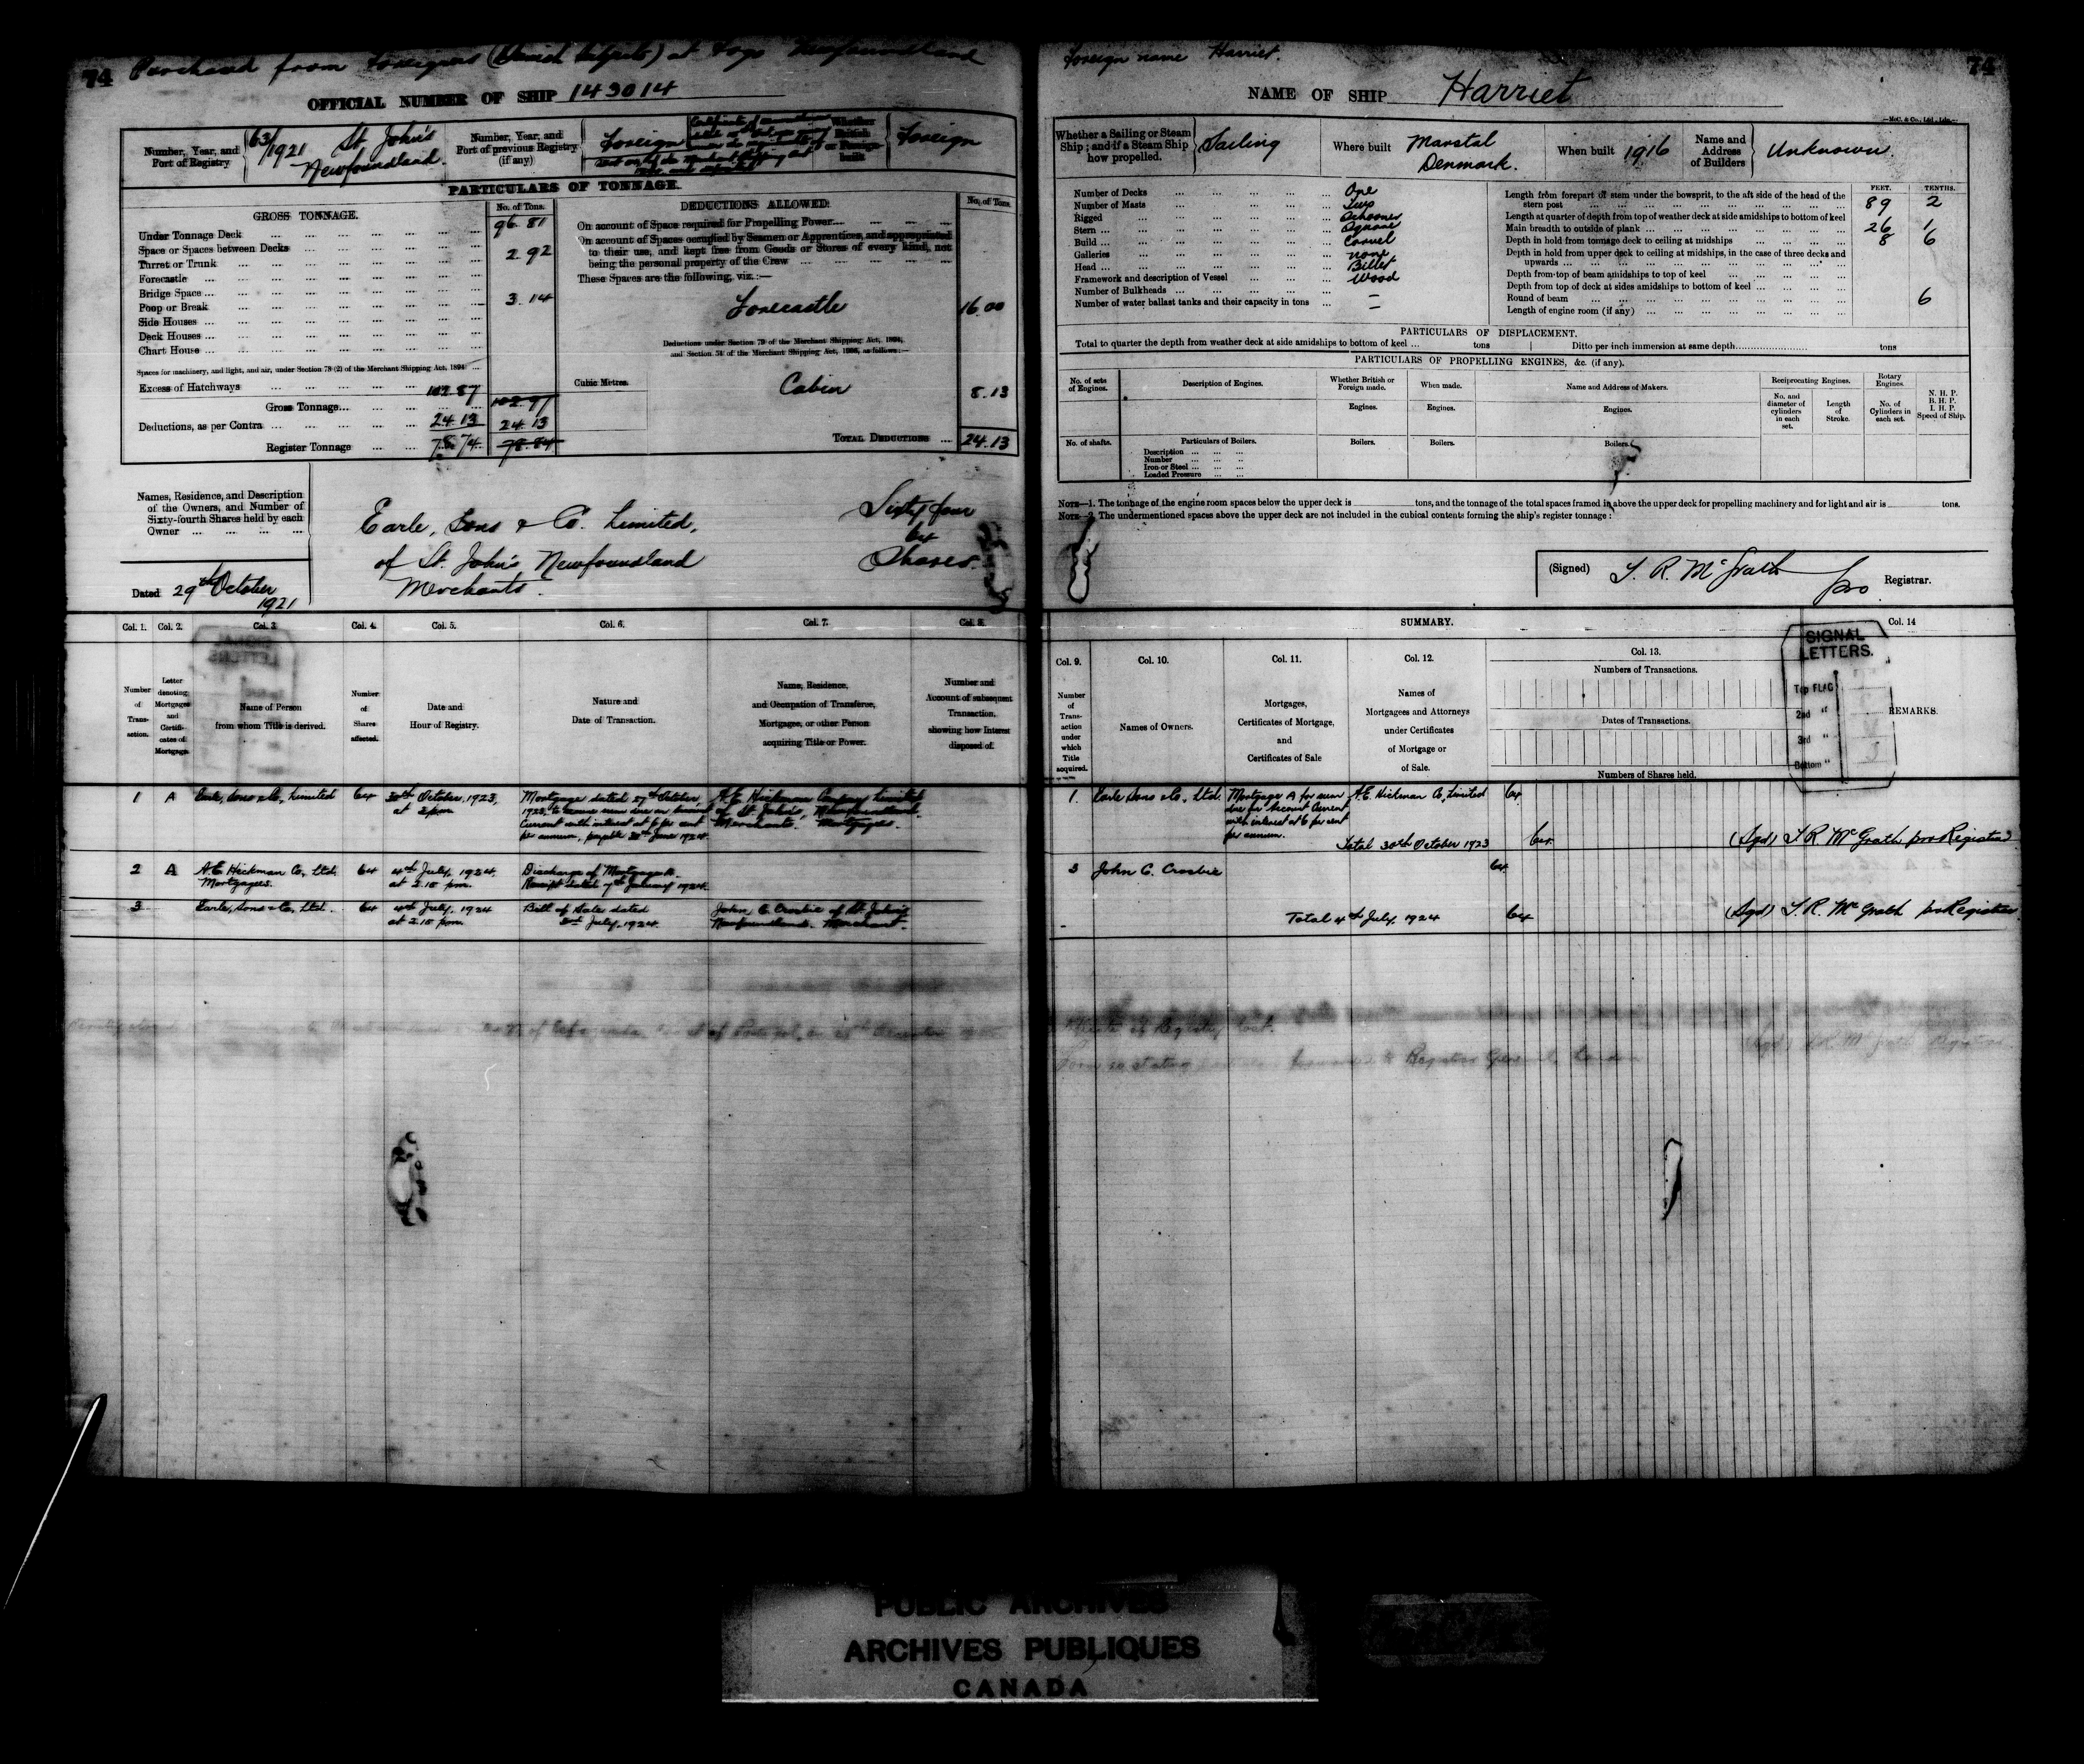 74 Purchased from Foreigners (Danish Subjects) at Fogo Newfoundland
OFFICIAL NUMBER OF SHIP 143014
Number, Year, and Port of Registry 63/1921 St John's Newfoundland
Number, Year, and Port of previous Registry (if any) Foreign
Whether British or Foreign built Foreign
PARTICULARS OF TONNAGE.
GROSS TONNAGE.
No. of Tons.
Under Tonnage Deck 96.81
Space or Spaces between Decks 2.92
Turret or Trunk
Forecastle
Bridge Space
Poop or Break 3.14
Side Houses
Deck Houses
Chart House
Spaces for machinery, and light, and air, under Section 78 (2) of the Merchant Shipping Act, 1894
Excess of Hatchways
Gross Tonnage 102.87 102.97
Deductions, as per Contra 24.13 24.13
Register Tonnage 78.74 78.84
DEDUCTIONS ALLOWED.
No. of Tons.
On account of Space required for Propelling Power
On account of Spaces occupied by Seamen or Apprentices, and appropriated
to their use, and kept free from Goods or Stores of every kind, not
being the personal property of the Crew
These Spaces are the following, viz.:—
Forecastle 16.00
Deductions under Section 79 of the Merchant Shipping Act, 1894,
and Section 54 of the Merchant Shipping Act, 1906, as follows:—
Cubic Metres.
Cabin 8.13
TOTAL DEDUCTIONS 24.13
Names, Residence, and Description
of the Owners, and Number of
Sixty-fourth Shares held by each
Owner
Earle, Sons & Co. Limited, Sixty four
64
of St. John's Newfoundland Shares
Merchants.
Dated 29th October 1921
Col. 1. Col. 2. Col. 3. Col. 4. Col. 5. Col. 6. Col. 7. Col. 8.
Number of Transaction.
Letter denoting Mortgages and Certificates of Mortgage.
Name of Person from whom Title is derived.
Number of Shares affected.
Date and Hour of Registry.
Nature and Date of Transaction.
Name, Residence, and Occupation of Transferee, Mortgagee, or other Person acquiring Title or Power.
Number and Account of subsequent Transaction, showing how Interest disposed of.
1 A Earle, Sons & Co, Limited 64 30th October, 1923, at 2 pm Mortgage dated 27th October, 1923, to secure sum due on Account Current with interest at 6 per cent per annum, payable 30th June 1924. A.E. Hickman Company Limited of St. John's, Newfoundland. Merchants. Mortgagees.
2 A A.E. Hickman Co, Ltd. Mortgagees. 64 4th July, 1924. at 2.15 pm. Discharge of Mortgage A. Receipt dated
3 Earle, Sons & Co, Ltd. 64 4th July, 1924 at 2.15 pm. Bill of Sale dated July, 1924. John C. Crosbie of St. John's Newfoundland. Merchant.
Foreign name Harriet.
74
NAME OF SHIP Harriet
Whether a Sailing or Steam Ship; and if a Steam Ship how propelled. Sailing
Where built Marstal Denmark.
When built 1916
Name and Address of Builders Unknown.
Number of Decks One
Number of Masts Two
Rigged Schooner
Stern Square
Build Carvel
Galleries none
Head Billet
Framework and description of Vessel Wood
Number of Bulkheads –
Number of water ballast tanks and their capacity in tons –
FEET. TENTHS.
Length from forepart of stem under the bowsprit, to the aft side of the head of the
stern post 89 2
Length at quarter of depth from top of weather deck at side amidships to bottom of keel
Main breadth to outside of plank 26 1
Depth in hold from tonnage deck to ceiling at midships 8 6
Depth in hold from upper deck to ceiling at midships, in the case of three decks and
upwards
Depth from top of beam amidships to top of keel
Depth from top of deck at sides amidships to bottom of keel
Round of beam 6
Length of engine room (if any)
PARTICULARS OF DISPLACEMENT.
Total to quarter the depth from weather deck at side amidships to bottom of keel tons Ditto per inch immersion at same depth tons
PARTICULARS OF PROPELLING ENGINES, &c. (if any).
No. of sets of Engines.
Description of Engines.
Whether British or Foreign made.
When made.
Name and Address of Makers.
Reciprocating Engines.
Rotary Engines.
N. H. P.
B. H. P.
I. H. P.
Speed of Ship.
Engines. Engines. Engines.
No. and diameter of cylinders in each set.
Length of Stroke.
No. of Cylinders in each set.
No. of shafts.
Particulars of Boilers.
Boilers. Boilers. Boilers.
Description
Number
Iron or Steel
Loaded Pressure
NOTE—1. The tonnage of the engine room spaces below the upper deck is tons, and the tonnage of the total spaces framed in above the upper deck for propelling machinery and for light and air is tons.
NOTE—2. The undermentioned spaces above the upper deck are not included in the cubical contents forming the ship's register tonnage:
(Signed) T. R. McGrath pro Registrar.
SUMMARY.
Col. 9. Col. 10. Col. 11. Col. 12. Col. 13. Col. 14
Number of Transaction under which Title acquired.
Names of Owners.
Mortgages, Certificates of Mortgage, and Certificates of Sale
Names of Mortgagees and Attorneys under Certificates of Mortgage or of Sale.
Numbers of Transactions.
Dates of Transactions.
Numbers of Shares held.
REMARKS.
SIGNAL LETTERS.
Top FLAG
2nd "
3rd "
Bottom "
1. Earle Sons & Co, Ltd. Mortgage A for sum due on Account Current with interest at 6 per cent per annum. A.E. Hickman Co, Limited 64
Total 30th October 1923 64 (Sgd) T. R. McGrath pro Registrar
3 John C. Crosbie 64
Total 4th July, 1924 64 (Sgd) T. R. McGrath pro Registrar
of Registry lost.
Registrar General, London
PUBLIC ARCHIVES
ARCHIVES PUBLIQUES
CANADA